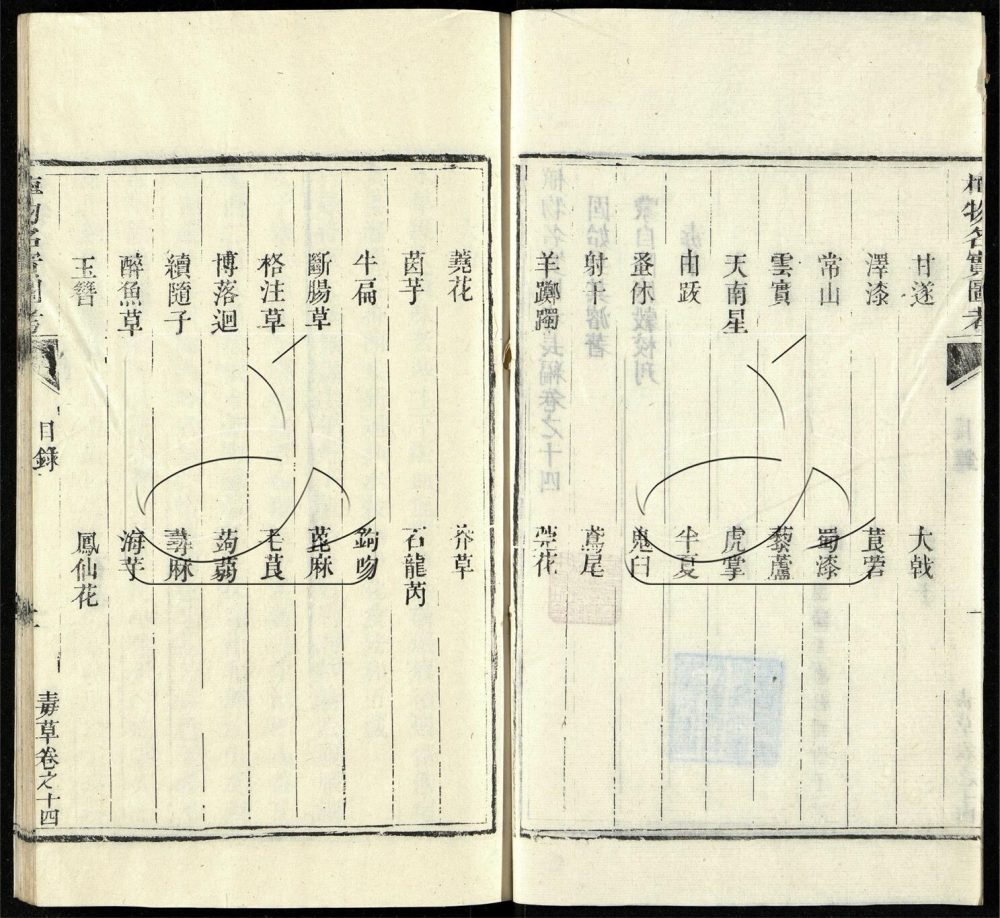 植物名實圖考
甘遂 大戟
澤漆 莨菪
常山 蜀漆
雲實 藜蘆
天南星 虎掌
由跋 半夏
蚤休 鬼臼
射干 鳶尾
羊躑躅 芫花
蕘花 莽草
茵芋 石龍芮
牛扁 鉤吻
斷腸草 蓖麻
格注草 毛茛
博落迴 蒟蒻
續隨子 蕁麻
醉魚草 海芋
玉簪 鳳仙花
目錄
毒草卷之十四